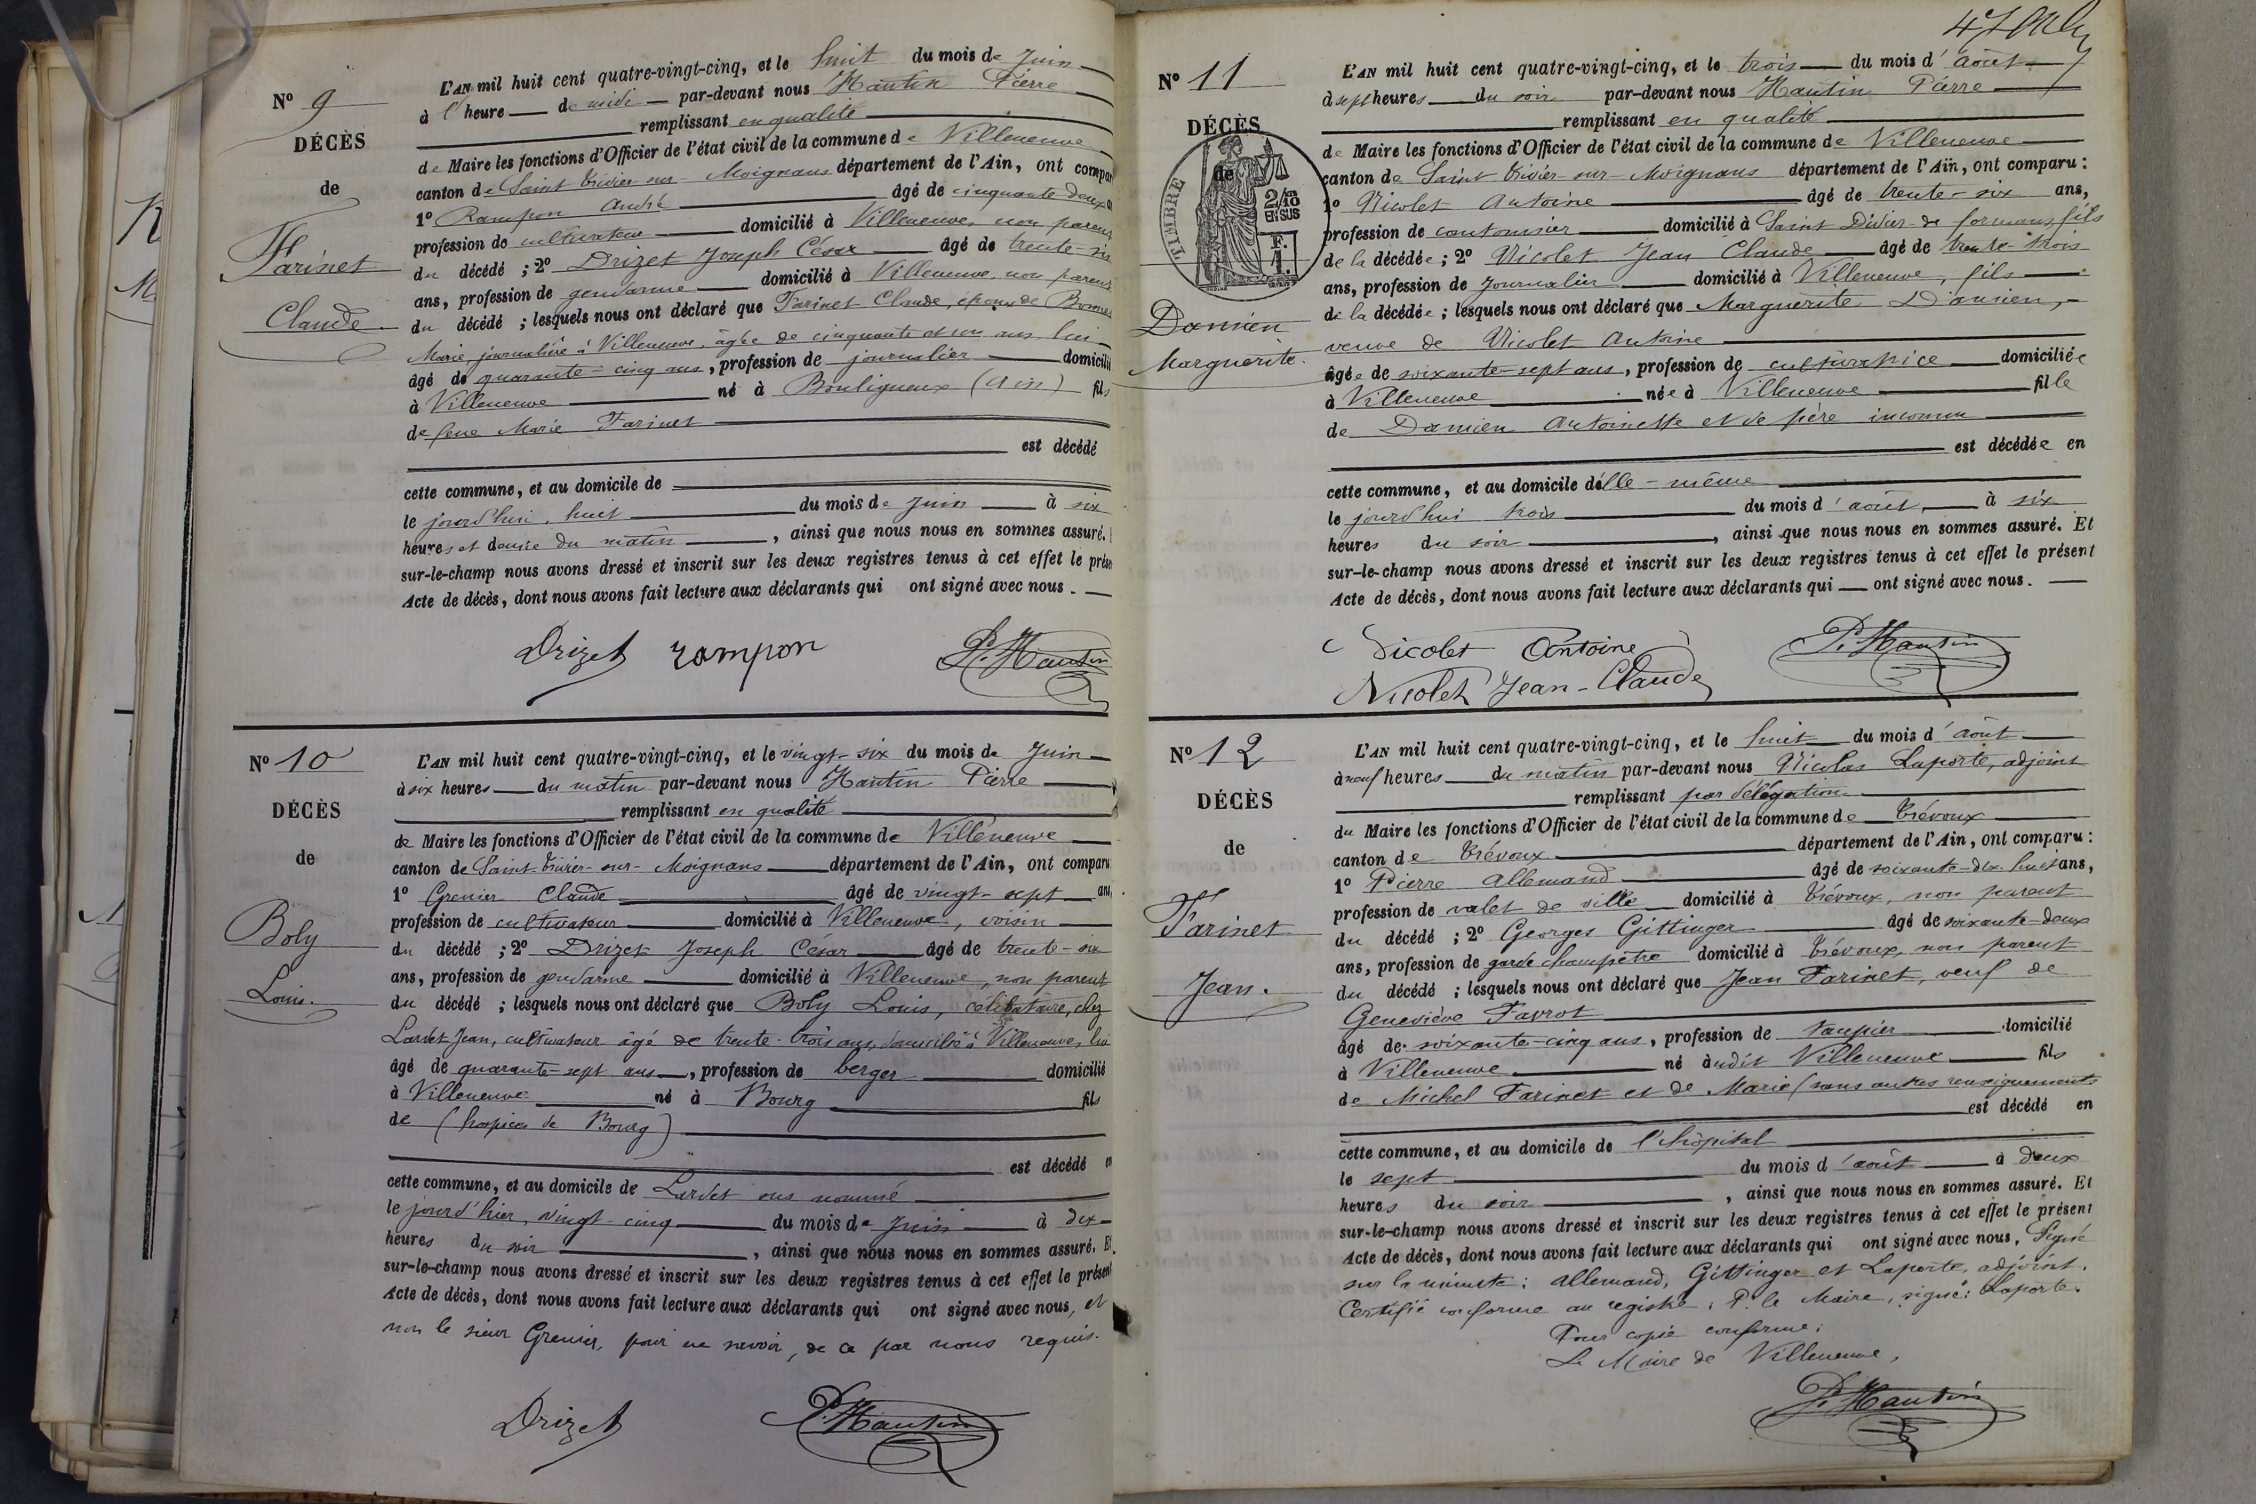 N° 9
DÉCÈS
de
Farinet
Claude.
L'AN mil huit cent quatre-vingt-cinq, et le huit du mois de Juin
à l'heure de midi par-devant nous Hantin Pierre
remplissant en qualité
de Maire les fonctions d'Officier de l'état civil de la commune de Villeneuve
canton de Saint Trivier-sur-Moignans département de l'Ain, ont compar
1° Rampon André âgé de cinquante deux
profession de cultivateur domicilié à Villeneuve, non parent
du décédé ; 2° Drizet Joseph César âgé de trente-six
ans, profession de gendarme domicilié à Villeneuve, non parent
du décédé ; lesquels nous ont déclaré que Farinet Claude, époux de
Marie journalière à Villeneuve, âgée de cinquante et un ans lui
âgé de quarante-cinq ans, profession de journalier domicilié
à Villeneuve né à Bouligneux (Ain) fils
de feue Marie Farinet
est décédé
cette commune, et au domicile de
le jourd'hui, huit du mois de Juin à six
heures et demie du matin, ainsi que nous nous en sommes assuré.
sur-le-champ nous avons dressé et inscrit sur les deux registres tenus à cet effet le prés
Acte de décès, dont nous avons fait lecture aux déclarants qui ont signé avec nous.
Drizet rampon P. Hantin
N° 10
DÉCÈS
de
Boly
Louis.
L'AN mil huit cent quatre-vingt-cinq, et le vingt-six du mois de Juin
à six heures du matin par-devant nous Hantin Pierre
remplissant en qualité
de Maire les fonctions d'Officier de l'état civil de la commune de Villeneuve
canton de Saint-Trivier-sur-Moignans département de l'Ain, ont compar
1° Grenier Claude âgé de vingt-sept ans
profession de cultivateur domicilié à Villeneuve, voisin
du décédé ; 2° Drizet Joseph César âgé de trente-six
ans, profession de gendarme domicilié à Villeneuve, non parent
du décédé ; lesquels nous ont déclaré que Boly Louis, célibataire, chez
Lardet Jean, cultivateur âgé de trente-trois ans, domicilié à Villeneuve, lui
âgé de quarante-sept ans, profession de berger domicilié
à Villeneuve né à Bourg fils
de (hospices de Bourg)
est décédé en
cette commune, et au domicile de Lardet sus nommé
le jourd'hier, vingt-cinq du mois de Juin à dix
heures du soir, ainsi que nous nous en sommes assuré. Et
sur-le-champ nous avons dressé et inscrit sur les deux registres tenus à cet effet le présent
Acte de décès, dont nous avons fait lecture aux déclarants qui ont signé avec nous, et
non le sieur Grenier, pour ne savoir, de ce par nous requis.
Drizet P. Hantin
N° 11
DÉCÈS
de
TIMBRE
2/10
EN SUS
F.
1.
Damien
Marguerite.
L'AN mil huit cent quatre-vingt-cinq, et le trois du mois d'août
à sept heures du soir par-devant nous Hantin Pierre
remplissant en qualité
de Maire les fonctions d'Officier de l'état civil de la commune de Villeneuve
canton de Saint Trivier-sur-Moignans département de l'Ain, ont comparu :
1° Nicolet Antoine âgé de trente-six ans,
profession de cantonnier domicilié à Saint Didier-de formans, fils
de la décédée ; 2° Nicolet Jean Claude âgé de trente-trois
ans, profession de Journalier domicilié à Villeneuve, fils
de la décédée ; lesquels nous ont déclaré que Marguerite Damien,
veuve de Nicolet Antoine
âgée de soixante-sept ans, profession de cultivatrice domiciliée
à Villeneuve née à Villeneuve fille
de Damien Antoinette et de père inconnu
est décédée en
cette commune, et au domicile d'elle-même
le jourd'hui trois du mois d'août à six
heures du soir, ainsi que nous nous en sommes assuré. Et
sur-le-champ nous avons dressé et inscrit sur les deux registres tenus à cet effet le présent
Acte de décès, dont nous avons fait lecture aux déclarants qui ont signé avec nous.
Nicolet Antoine P. Hantin
Nicolet Jean-Claude
N° 12
DÉCÈS
de
Farinet
Jean.
L'AN mil huit cent quatre-vingt-cinq, et le huit du mois d'août
à neuf heures du matin par-devant nous Nicolas Laporte, adjoint
remplissant par délégation
du Maire les fonctions d'Officier de l'état civil de la commune de Trévoux
canton de Trévoux département de l'Ain, ont comparu :
1° Pierre Allemand âgé de soixante-dix huit ans,
profession de valet de ville domicilié à Trévoux, non parent
du décédé ; 2° Georges Gittinger âgé de soixante-deux
ans, profession de garde champêtre domicilié à Trévoux, non parent
du décédé ; lesquels nous ont déclaré que Jean Farinet, veuf de
Geneviève Favrot
âgé de soixante-cinq ans, profession de taupier domicilié
à Villeneuve né àudit Villeneuve fils
de Michel Farinet et de Marie (sans autres renseignements
est décédé en
cette commune, et au domicile de l'hôpital
le sept du mois d'août à deux
heures du soir, ainsi que nous nous en sommes assuré. Et
sur-le-champ nous avons dressé et inscrit sur les deux registres tenus à cet effet le présent
Acte de décès, dont nous avons fait lecture aux déclarants qui ont signé avec nous, Signé
sur la minute : Allemand, Gittinger et Laporte, adjoint.
Certifié conforme au registre, P. le Maire, signé : Laporte.
Pour copie conforme :
Le Maire de Villeneuve,
P. Hantin